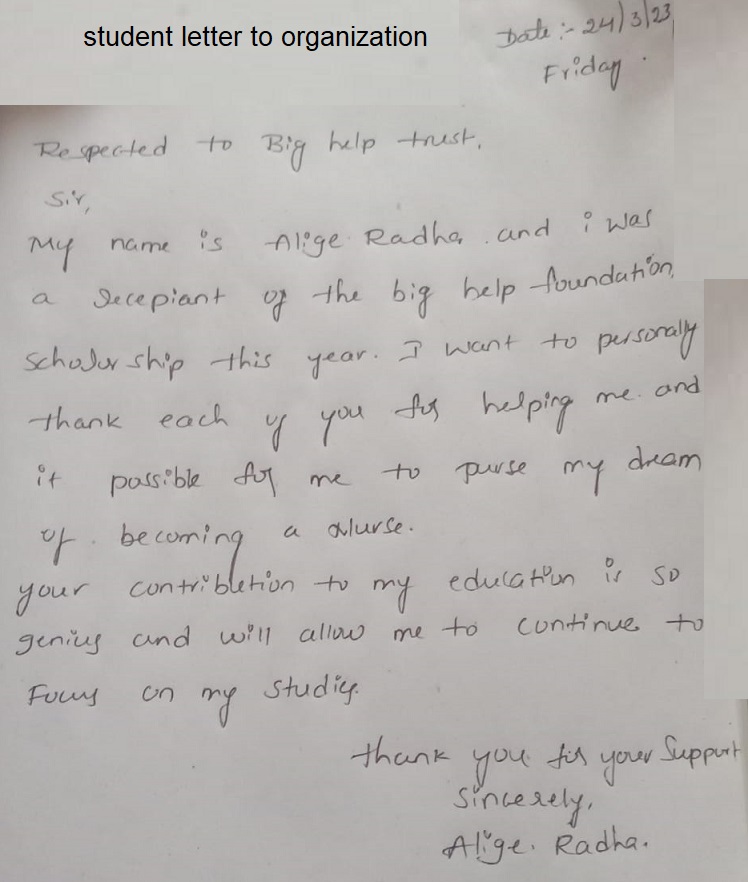 student letter to organization
Date :- 24/3/23
Friday
Respected to Big help trust,
Sir,
My name is Alige Radha. and i was
a recepiant of the big help foundation
scholorship this year. I want to personally
thank each of you for helping me. and
it possible for me to purse my dream
of. becoming a Nurse.
your contribletion to my education is so
genius and will allow me to continue to
Focus on my studies.
thank you for your Support
Sincerely,
Alige. Radha.